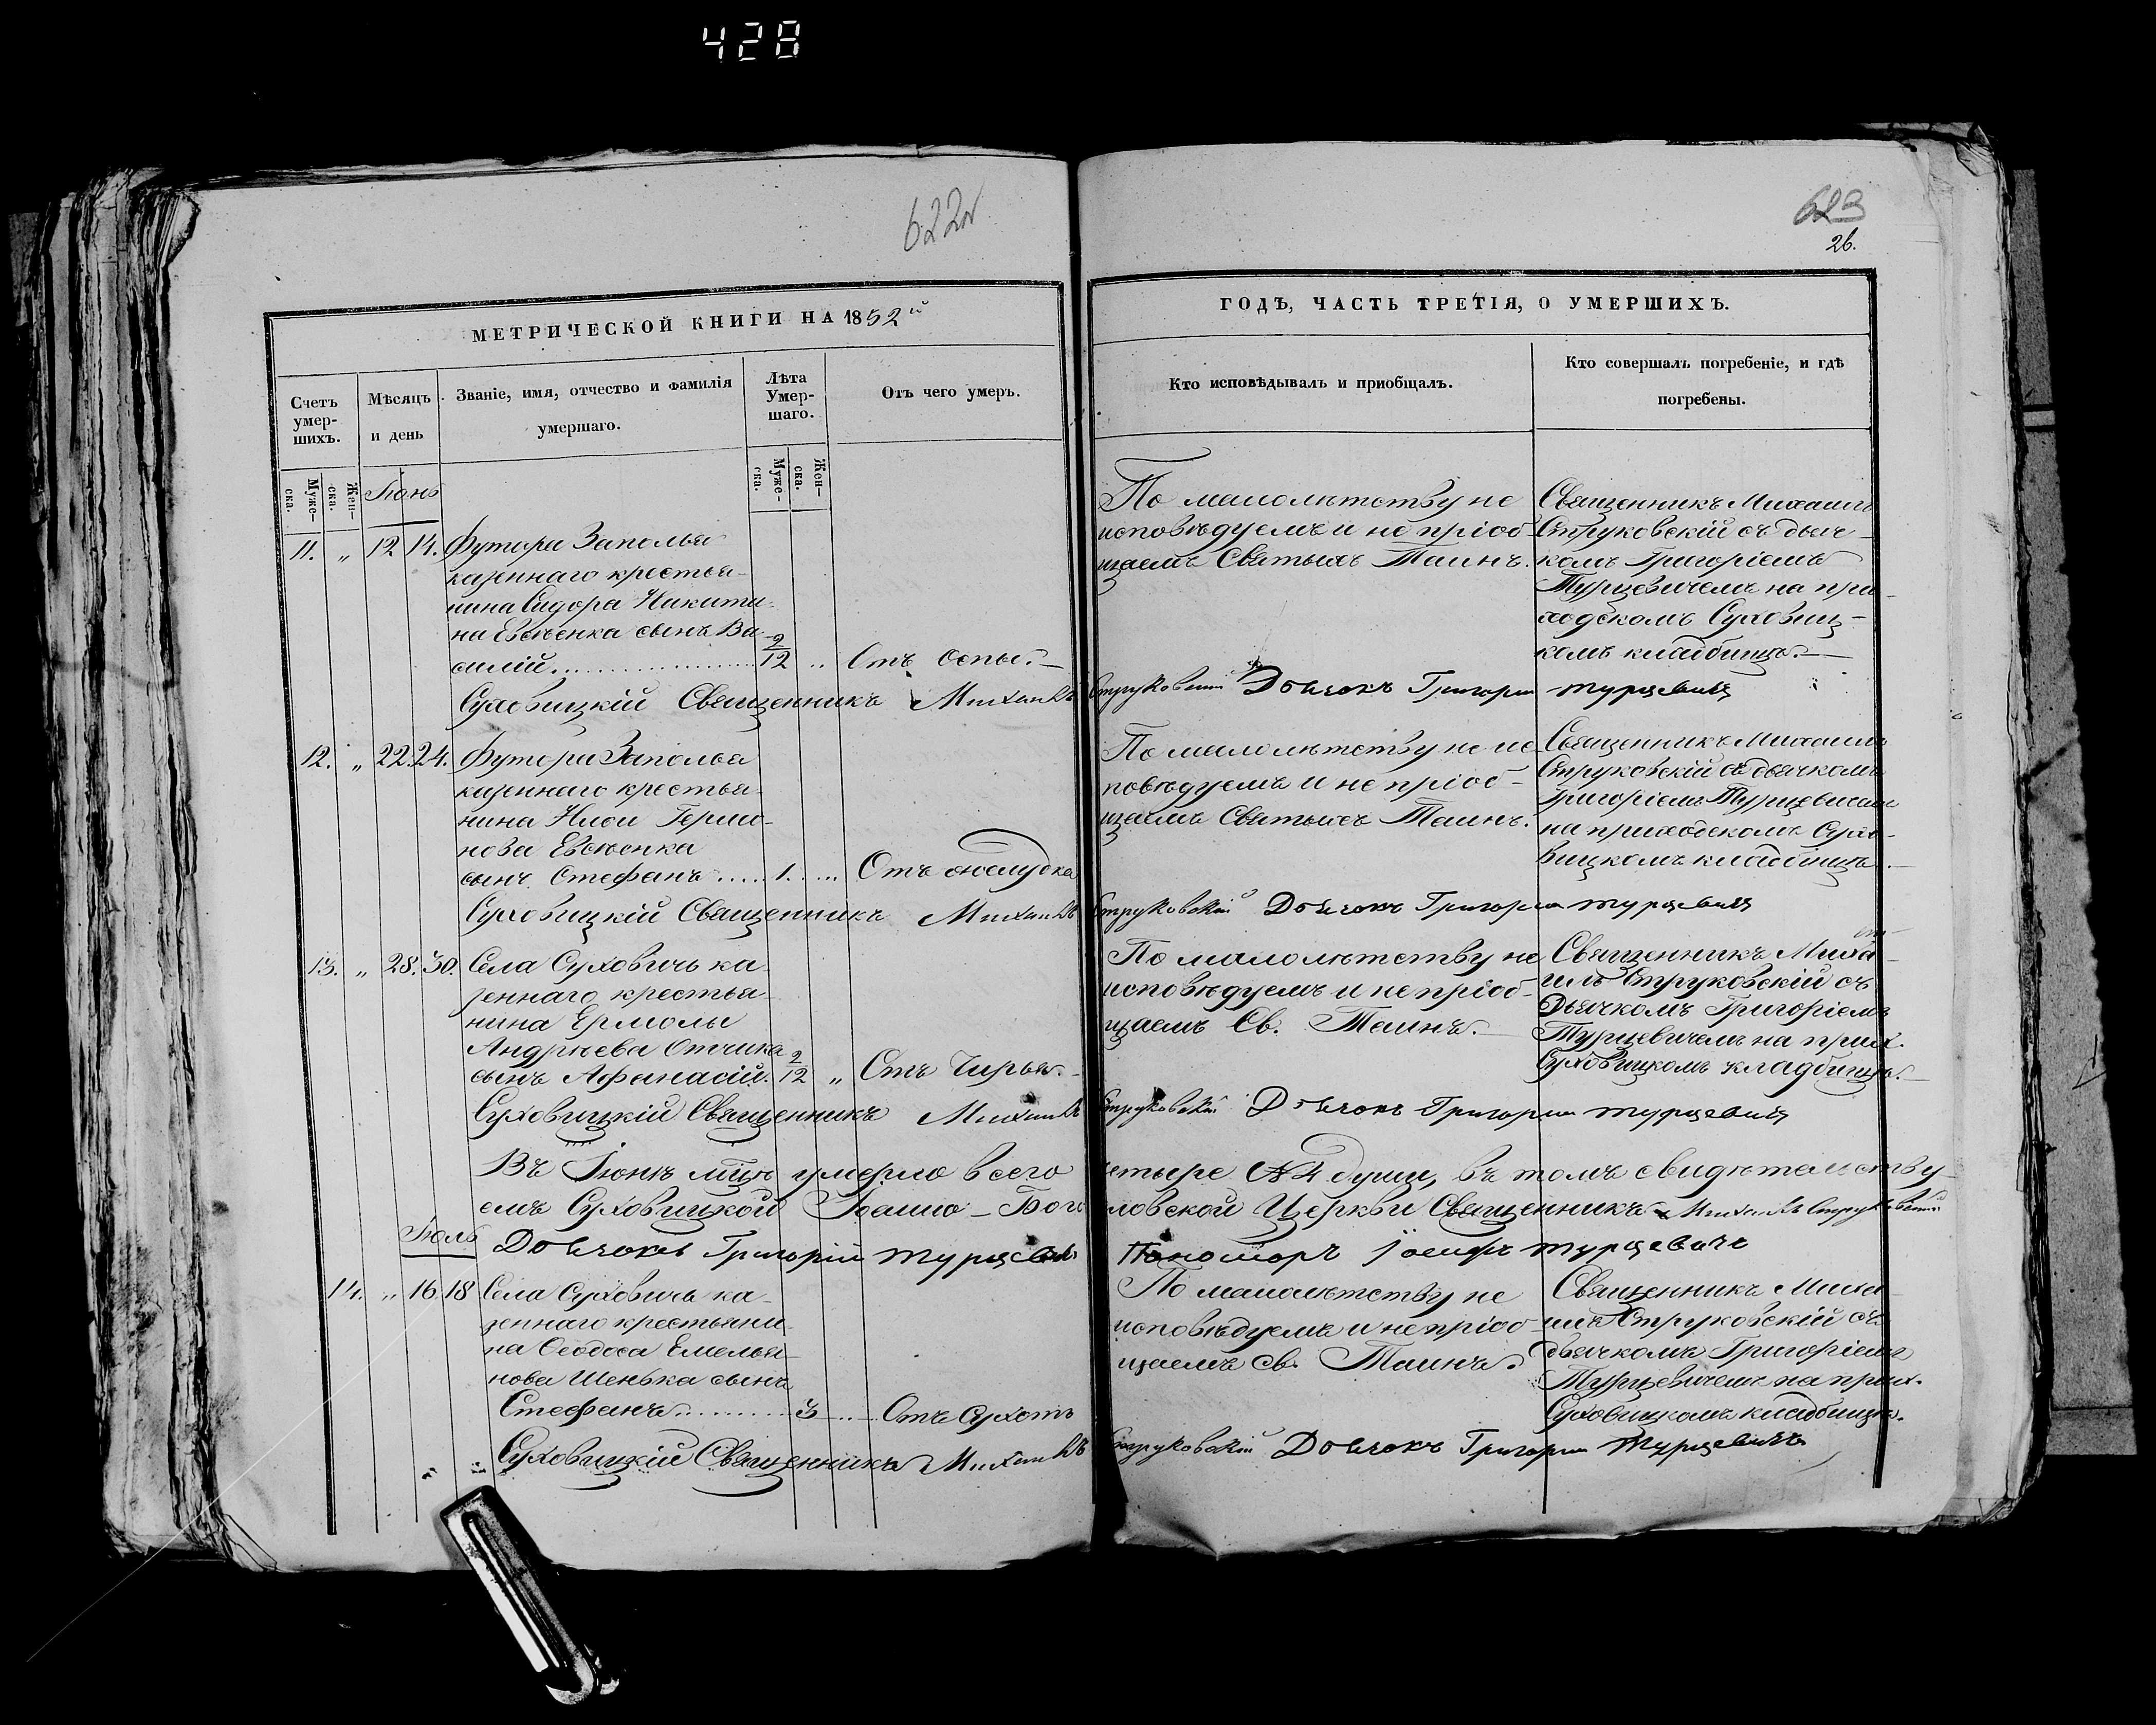 428
622об
623
26.
МЕТРИЧЕСКОЙ КНИГИ НА 1852й
ГОДЪ, ЧАСТЬ ТРЕТІЯ, О УМЕРШИХЪ.
Счетъ умер-шихъ.
Мѣсяцъ и день
Званіе, имя, отчество и фамилія умершаго.
Лѣта Умер-шаго.
Отъ чего умеръ.
Кто исповѣдывалъ и приобщалъ.
Кто совершалъ погребеніе, и гдѣ погребены.
Муже-ска.
Жен-ска.
Муже-ска.
Жен-ска.
Іюнь
11. „ 12 14. Футора Заполья
казеннаго крестья-
нина Сидора Никити-
на Евсѣенка сынъ Ва-
силій. 2/12 „ Отъ Оспы.
По малолѣтству не
исповѣдуемъ и не пріоб-
щаемъ Святыхъ Таинъ.
Священникъ Михаилъ
Струковскій съ дьяч-
комъ Григоріемъ
Турцевичемъ на при-
ходскомъ Суховиц-
комъ кладбищѣ.
Суховицкій Священникъ Михаилъ Струковскій Дьячокъ Григорій Турцевичъ
12. „ 22. 24. Футора Заполья
казеннаго крестья-
нина Иліи Гермо-
нова Евсѣенка
сынъ Стефанъ 1. Отъ желудка
По малолѣтству не ис-
повѣдуемъ и не пріоб-
щаемъ Святыхъ Таинъ.
Священникъ Михаилъ
Струковскій съ дьячкомъ
Григоріемъ Турцевичемъ
на приходскомъ Сухо-
вицкомъ кладбищѣ.
Суховицкій Священникъ Михаилъ Струковскій Дьячокъ Григорій Турцевичъ
13. „ 28. 30. Села Суховичь ка-
зеннаго крестья-
нина Ермолы
Андрѣева Отчика
сынъ Афанасій. 2/12 „ Отъ Чирья.
По малолѣтству не
исповѣдуемъ и не пріоб-
щаемъ Св. Таинъ.
Священникъ Миха-
илъ Струковскій съ
Дьячкомъ Григоріемъ
Турцевичемъ на прих.
Суховицкомъ кладбищѣ.
Суховицкій Священникъ Михаилъ Струковскій Дьячокъ Григорій Турцевичъ
Въ Іюнѣ мцѣ умерло всего четыре № 4 души, въ томъ свидѣтельству-
емъ Суховицкой Іоанно-Богословской Церкви Священникъ Михаилъ Струковскій
Дьячокъ Григорій Турцевичъ Пономоръ Іосифъ Турцевичъ
Іюль
14. „ 16 18 Села Суховичь ка-
зеннаго крестьяни-
на Ѳеодоса Емелья-
нова Шенька сынъ
Стефанъ 3 Отъ Сухотъ
По малолѣтству не
исповѣдуемъ и не пріоб-
щаемъ Св. Таинъ.
Священникъ Миха-
илъ Струковскій съ
дьячкомъ Григоріемъ
Турцевичемъ на прих.
Суховицкомъ кладбищѣ.
Суховицкій Священникъ Михаилъ Струковскій Дьячокъ Григорій Турцевичъ